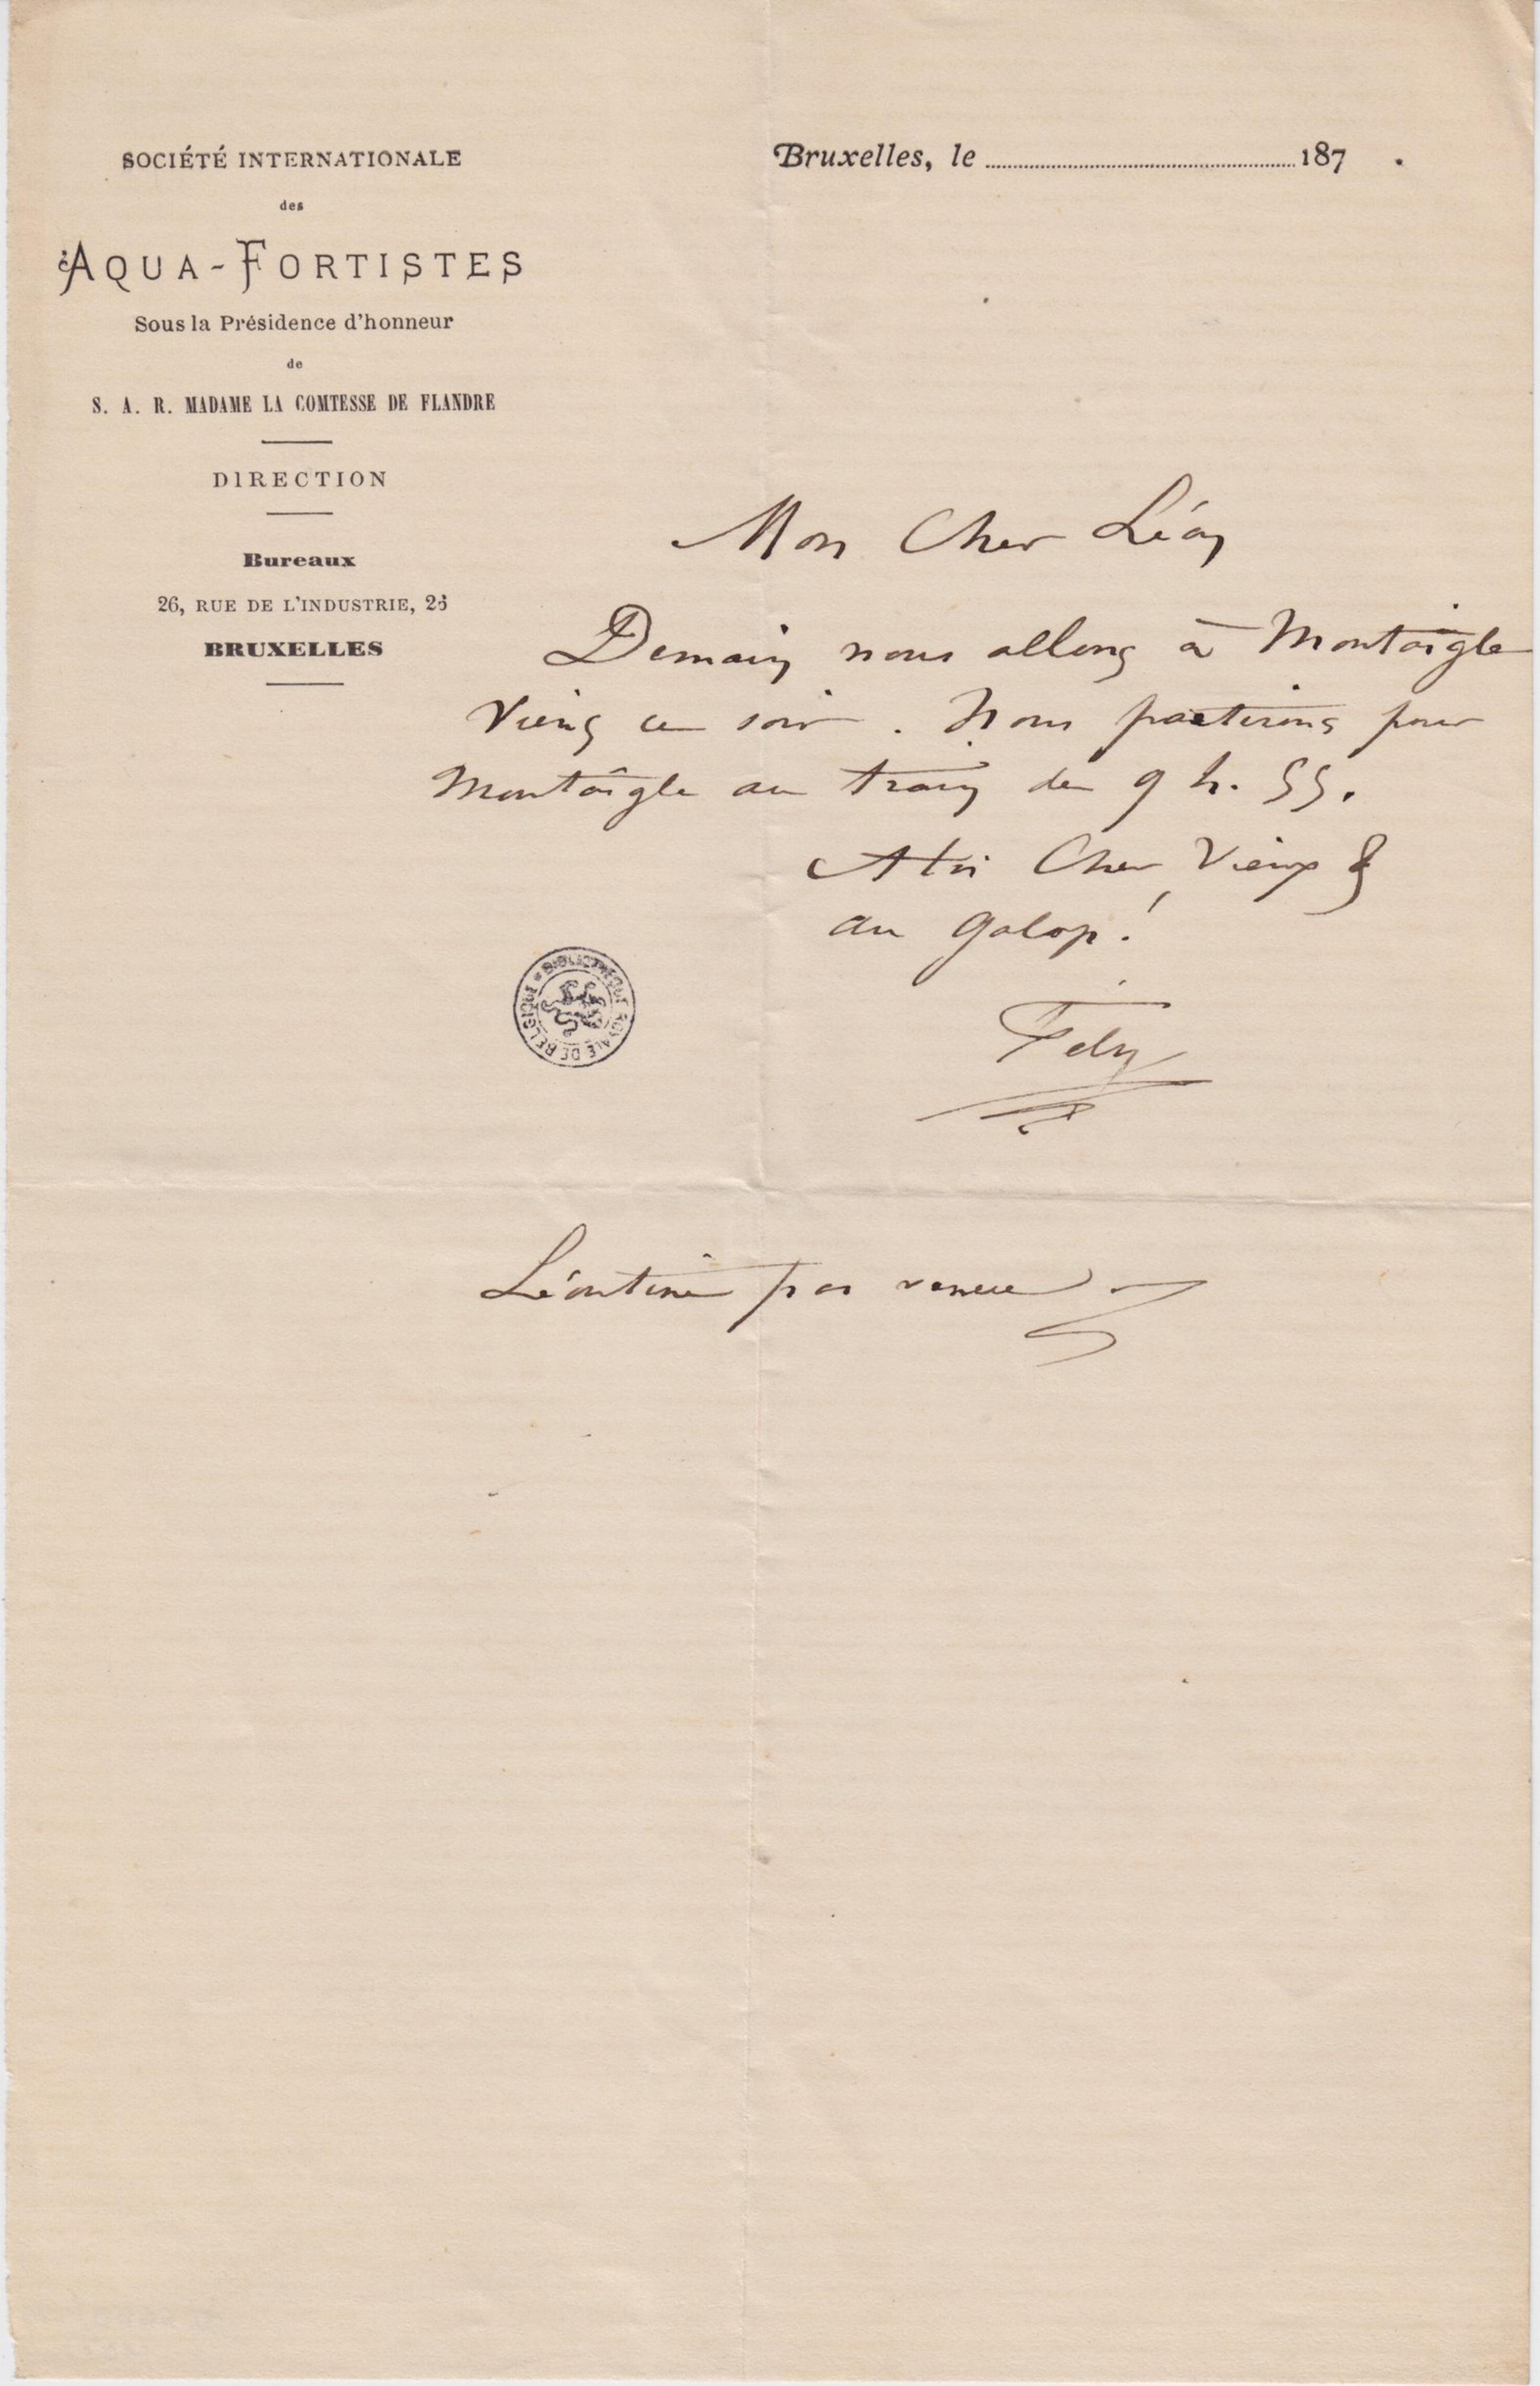 SOCIÉTÉ INTERNATIONALE
des
AQUA-FORTISTES
Sous la Présidence d'honneur
de
S. A. R. MADAME LA COMTESSE DE FLANDRE
DIRECTION
Bureaux
26, RUE DE L'INDUSTRIE, 26
BRUXELLES
Bruxelles, le 187 .
Mon Cher Léon
Demain nous allons à Montaigle
Viens ce soir. Nous partirons pour
Montaigle au train de 9 h. 55.
A toi Cher Vieux &
au galop!
Fély
Léontine pas venue
BIBLIOTHÈQUE ROYALE DE BELGIQUE